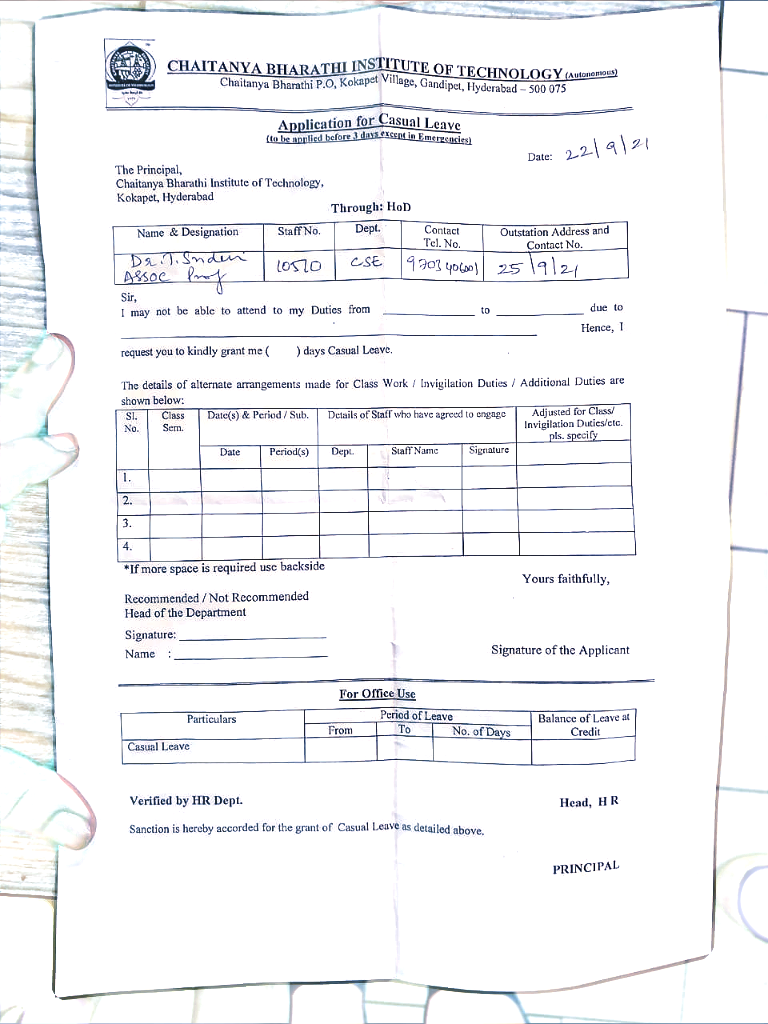 CHAITANYA BHARATHI INSTITUTE OF TECHNOLOGY (Autonomous)
Chaitanya Bharathi P.O, Kokapet Village, Gandipet, Hyderabad – 500 075
Application for Casual Leave
(to be applied before 3 days except in Emergencies)
Date: 22/9/21
The Principal,
Chaitanya Bharathi Institute of Technology,
Kokapet, Hyderabad
Through: HoD
Name & Designation Staff No. Dept. Contact Tel. No. Outstation Address and Contact No.
Dr. T. 10510 CSE 25/9/21
Assoc Prof
Sir,
I may not be able to attend to my Duties from ____________ to ____________ due to
____________ Hence, I
request you to kindly grant me ( ) days Casual Leave.
The details of alternate arrangements made for Class Work / Invigilation Duties / Additional Duties are
shown below:
Sl. No. Class Sem. Date(s) & Period / Sub. Details of Staff who have agreed to engage Adjusted for Class/ Invigilation Duties/etc. pls. specify
Date Period(s) Dept. Staff Name Signature
1.
2.
3.
4.
*If more space is required use backside
Yours faithfully,
Recommended / Not Recommended
Head of the Department
Signature: ____________
Name : ____________
Signature of the Applicant
For Office Use
Particulars Period of Leave Balance of Leave at Credit
From To No. of Days
Casual Leave
Verified by HR Dept. Head, H R
Sanction is hereby accorded for the grant of Casual Leave as detailed above.
PRINCIPAL